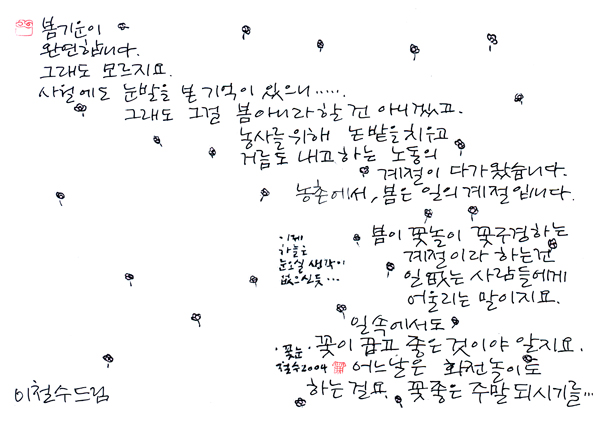 봄기운이
완연합니다.
그래도 모르지요.
사월에도 눈발을 본 기억이 있으니.....
그래도 그걸 봄 아니라 할 건 아니겠고.
농사를 위해 논밭을 치우고
거름도 내고 하는 노동의
계절이 다가왔습니다.
농촌에서, 봄은 일의 계절입니다.
봄이 꽃놀이 꽃구경하는
계절이라 하는건
일 없는 사람들에게
어울리는 말이지요.
이제
하늘은
눈오실 생각이
없으신듯...
일속에서도
꽃이 곱고 좋은 것이야 알지요.
어느날은 화전놀이도
하는걸요. 꽃좋은 주말 되시기를...
·꽃눈·
철수2004
이철수드림